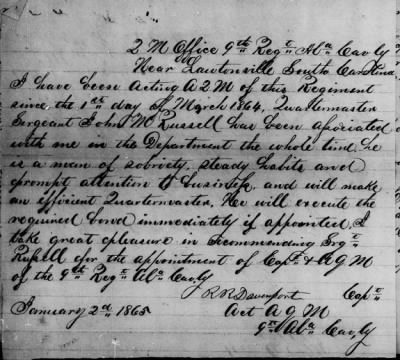 Q M Office 9th Regt Ala Cavly
Near Lawtonville South Carolina
I have been Acting A Q M of this Regiment
since the 1st day of March 1864, Quartermaster
Sergeant John M Russell has been asociated
with me in the Department the whole time. he
is a man of sobriety, steady habits and
prompt attention to business, and will make
an efficient Quartermaster, He will execute the
required bond immediately if appointed, I
take great pleasure in recommending Srgt
Russell for the appointment of Capt & A Q M
of the 9th Regt Ala Cavly
R R Davenport Capt
January 2d 1865 Act A Q M
9th Ala Cavly